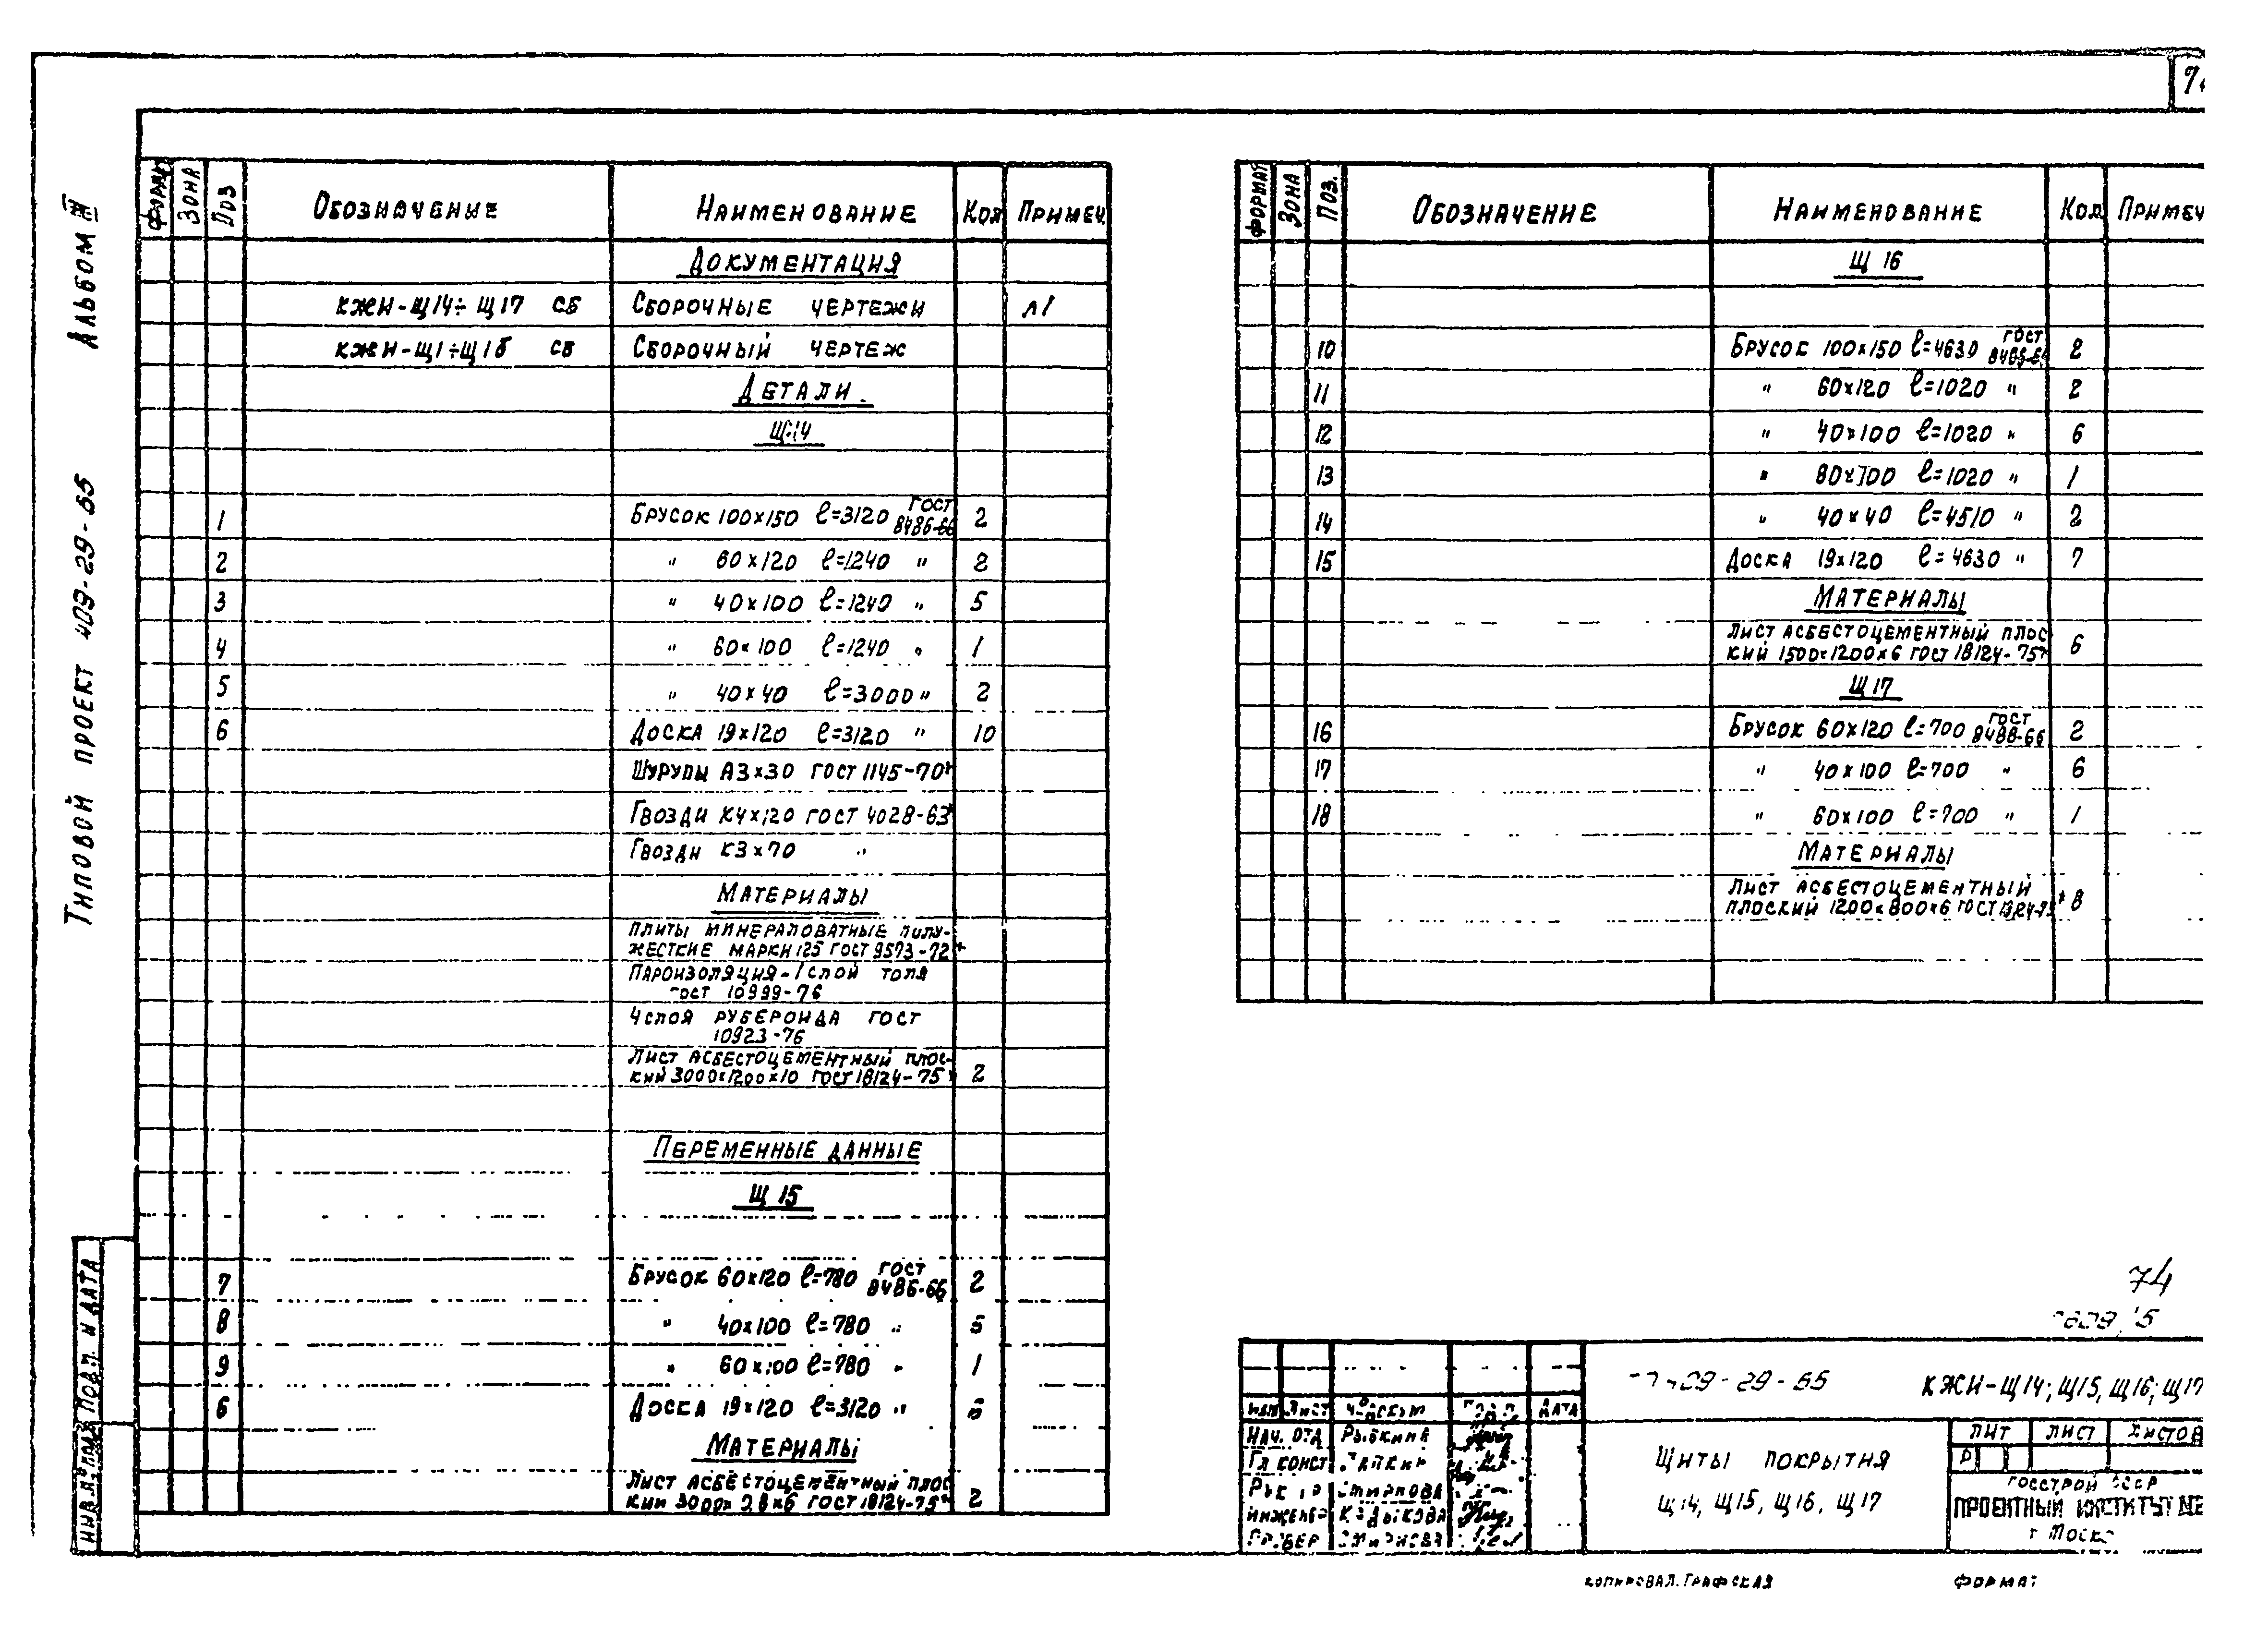 Альбом III
Типовой проект 409-29-65
Формат Зона Поз Обозначение Наименование Кол Примеч.
Документация
КЖИ-Щ14÷Щ17 СБ Сборочные чертежи л1
КЖИ-Щ1÷Щ16 СБ Сборочный чертеж
Детали
Щ14
1 Брусок 100х150 ℓ=3120 ГОСТ 8486-66 2
2 " 60х120 ℓ=1240 " 2
3 " 40х100 ℓ=1240 " 5
4 " 60х100 ℓ=1240 " 1
5 " 40х40 ℓ=3000 " 2
6 Доска 19х120 ℓ=3120 " 10
Шурупы А3х30 ГОСТ 1145-70*
Гвозди К4х120 ГОСТ 4028-63*
Гвозди К3х70 "
Материалы
Плиты минераловатные полу-
жесткие марки 125 ГОСТ 9573-72*
Пароизоляция-1 слой толя
гост 10999-76
4 слоя рубероида гост
10923-76
Лист асбестоцементный плос-
кий 3000х1200х10 ГОСТ 18124-75* 2
Переменные данные
Щ 15
7 Брусок 60х120 ℓ=780 ГОСТ 8486-66 2
8 " 40х100 ℓ=780 "
9 " 60х100 ℓ=780 " 1
6 Доска 19х120 ℓ=3120 "
Материалы
Лист асбестоцементный плос
кий ГОСТ 18124-75* 2
Формат Зона Поз. Обозначение Наименование Кол Примеч
Щ 16
10 Брусок 100х150 ℓ=4630 ГОСТ 8486-66 2
11 " 60х120 ℓ=1020 " 2
12 " 40х100 ℓ=1020 " 6
13 " 80х100 ℓ=1020 " 1
14 " 40х40 ℓ=4510 " 2
15 Доска 19х120 ℓ=4630 " 7
Материалы
Лист асбестоцементный плос
кий 1500х1200х6 ГОСТ 18124-75* 6
Щ 17
16 Брусок 60х120 ℓ=700 ГОСТ 8486-66 2
17 " 40х100 ℓ=700 " 6
18 " 60х100 ℓ=700 " 1
Материалы
Лист асбестоцементный
плоский 1200х800х6 ГОСТ 18124-75* 8
74
Инв.№ подл Подп. и дата
409-29-65 КЖИ-Щ14; Щ15, Щ16; Щ17
Изм Лист № докум Подп. Дата
Нач. отд Рыбкина
Гл конст
Рук гр Смирнова
Инженер
Провер Смирнова
Щиты покрытия
Щ14, Щ15, Щ16, Щ17
Лит Лист Листов
Р
Госстрой СССР
Проектный институт №2
г Моск
Копировал. Графская Формат